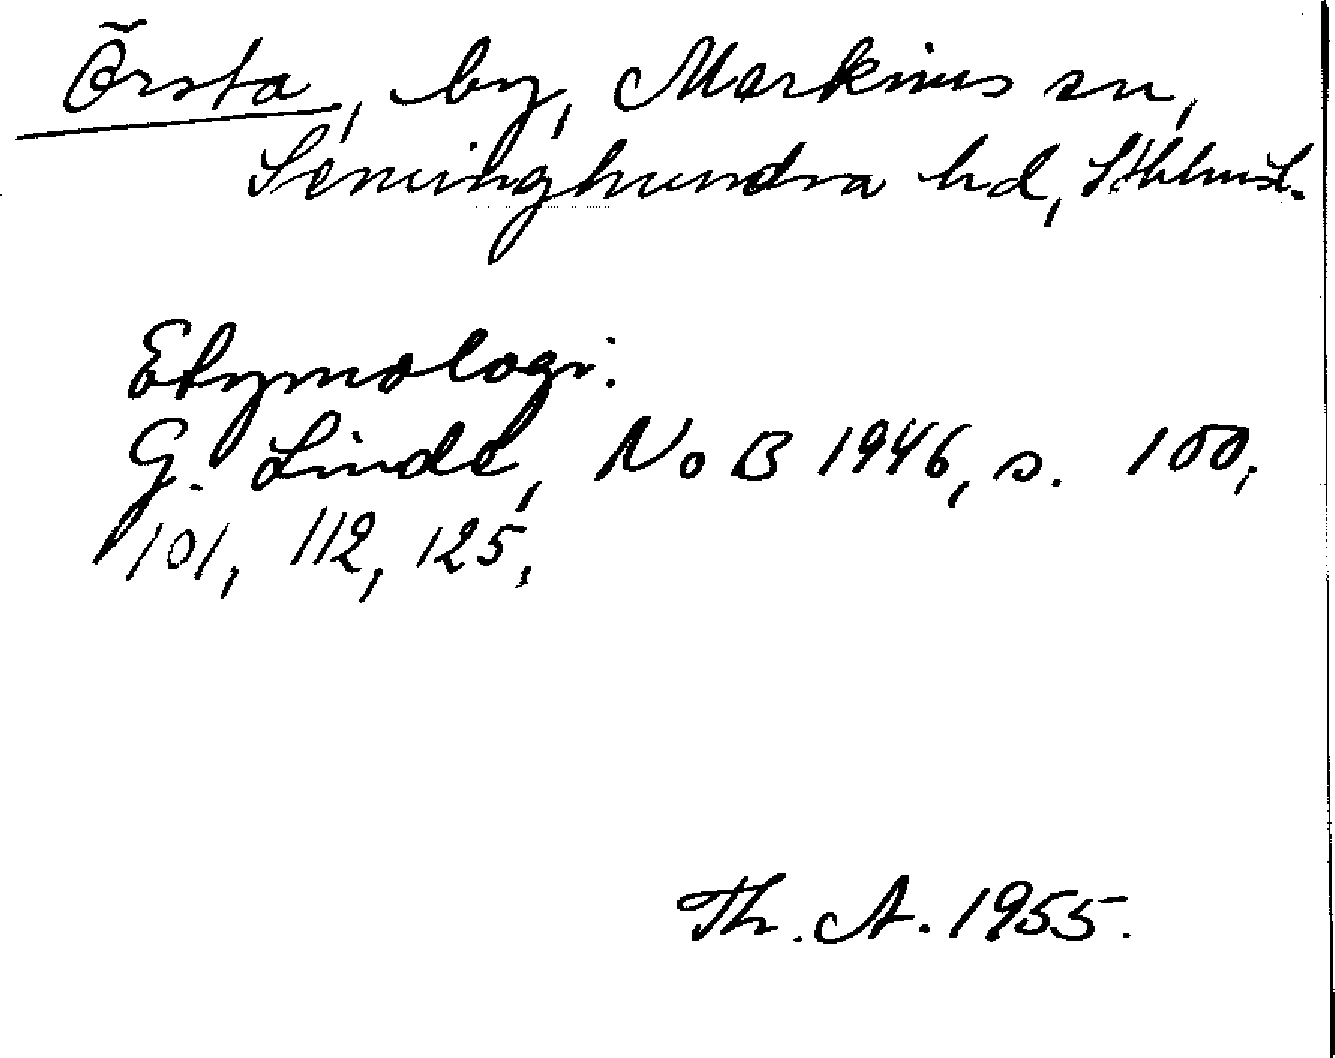 Örsta, by, Markims sn,
Seminghundra hd, Sthlms l.
Etymologi:
G. Linde, NoB 1946, s. 100,
101, 112, 125,
Th. A. 1955.